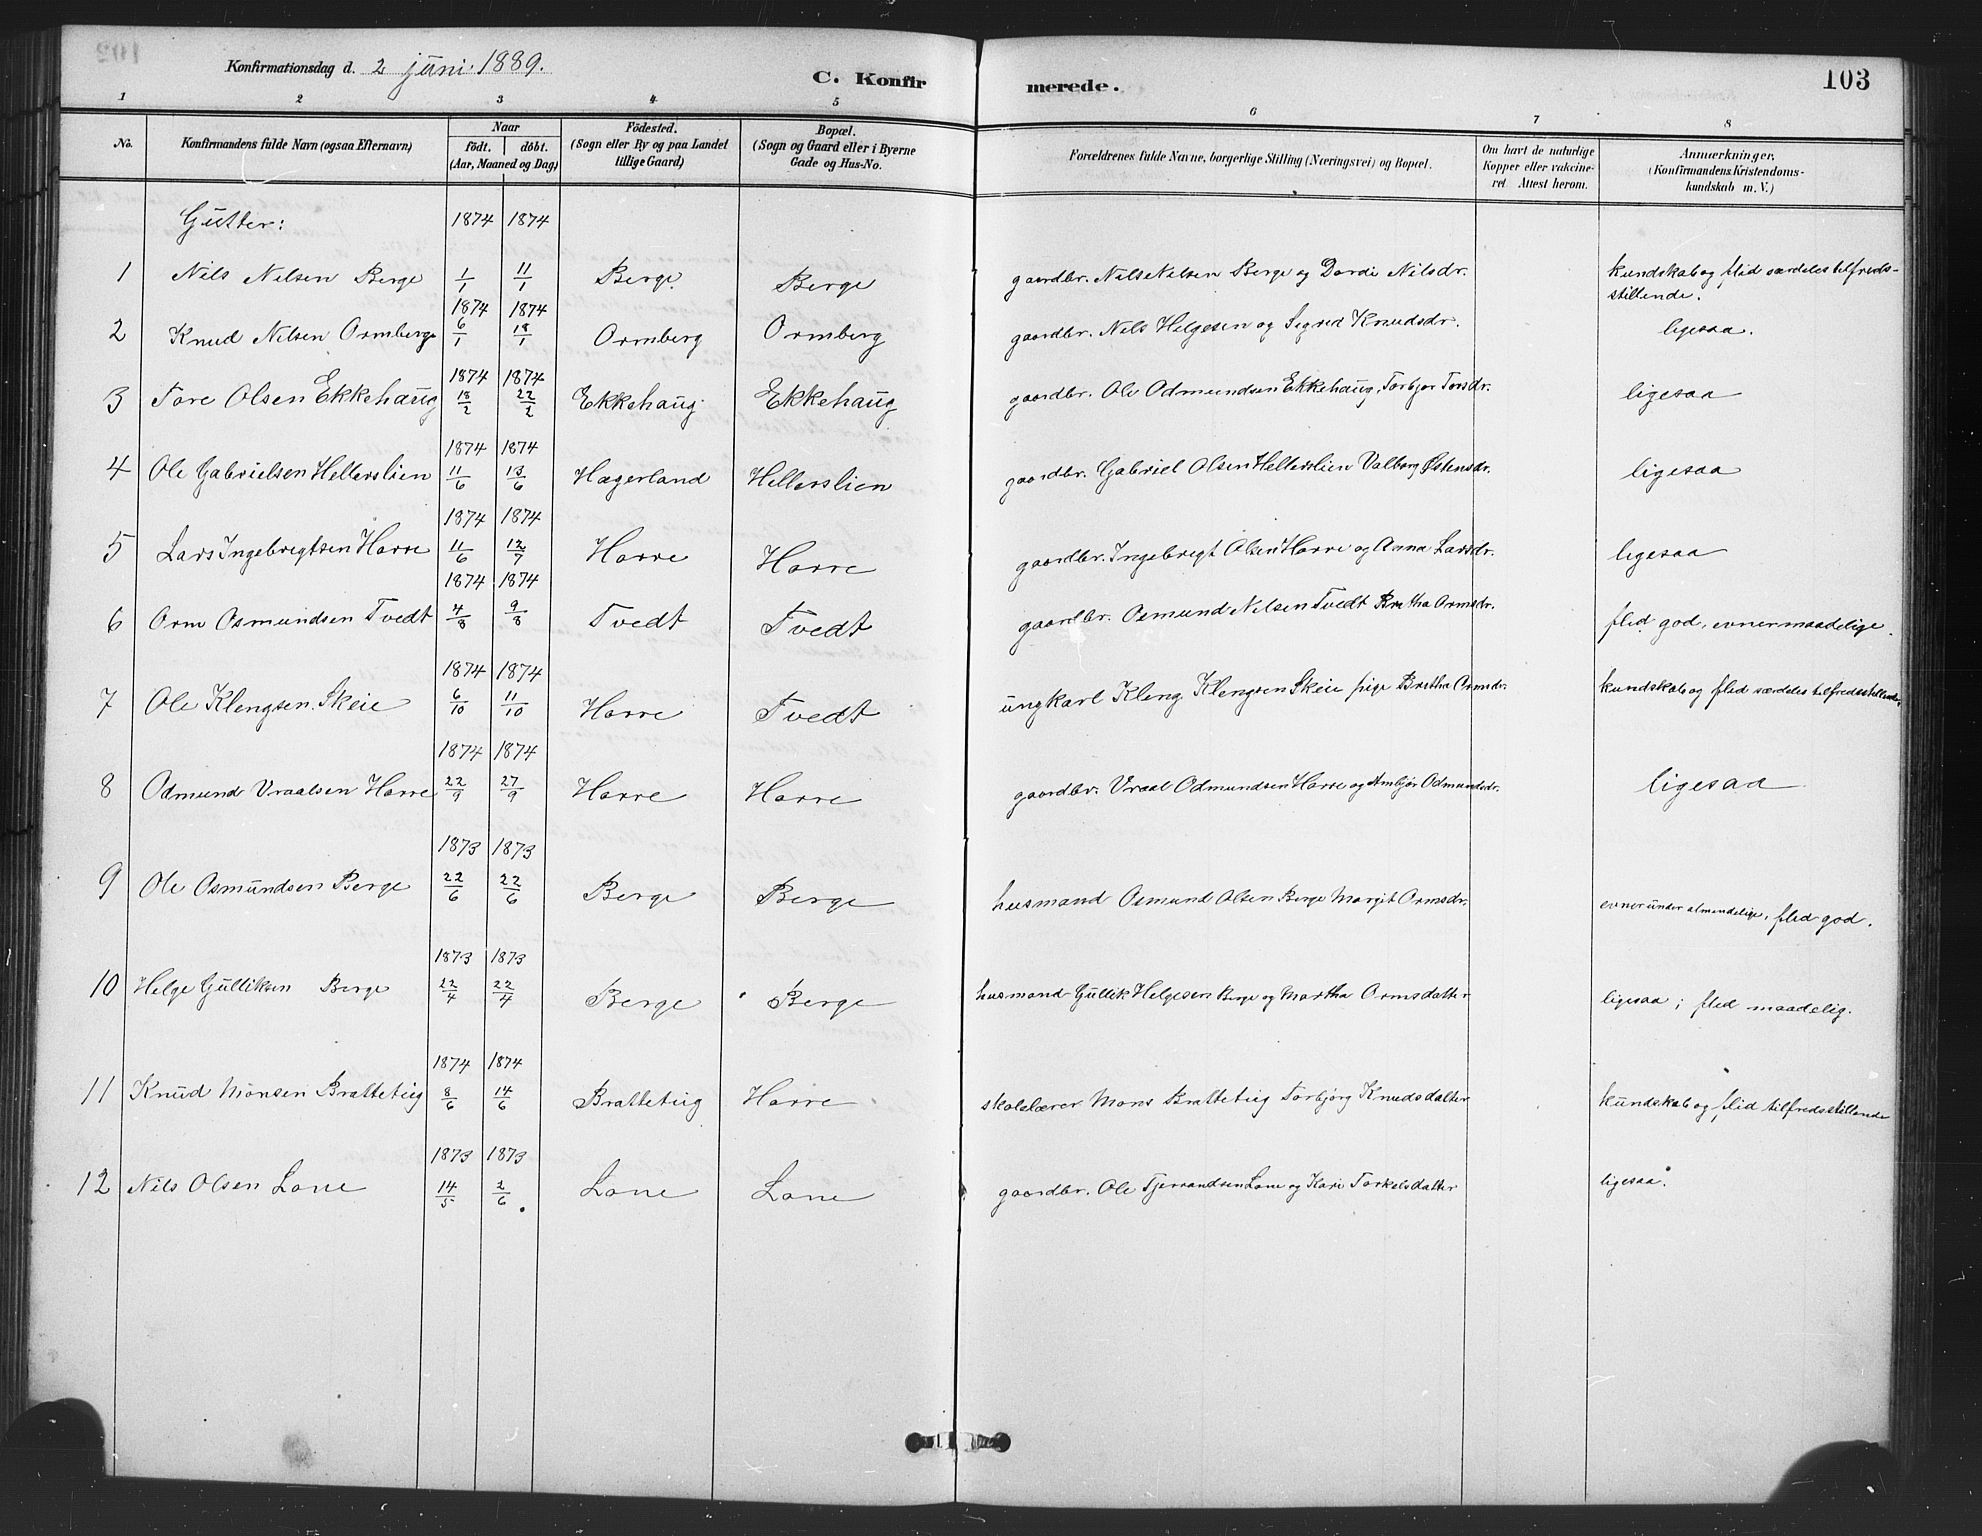 Konfirmationsdag d. 2 juni 1889.
C. Konfirmerede.
103
1 2 3 4 5 6 7 8
No.
Konfirmandens fulde Navn (ogsaa Efternavn)
Naar
födt. döbt.
(Aar, Maaned og Dag)
Födested.
(Sogn eller By og paa Landet
tillige Gaard)
Bopæl.
(Sogn og Gaard eller i Byerne
Gade og Hus-No.
Forældrenes fulde Navne, borgerlige Stilling (Næringsvei) og Bopæl.
Om havt de naturlige
Kopper eller vakcine-
ret. Attest herom.
Anmærkninger.
(Konfirmandens Kristendoms-
kundskab m. V.)
Gutter:
1874 1874
1 Nils Nilsen Berge 1/1 11/1 Berge. Berge gaardbr. Nils Nilsen Berge og Dordi Nilsdr. kundskab og flid særdeles tilfreds-
stillende.
1874 1874
2 Knud Nilsen Ormberge 6/1 18/1 Ormberg Ormberg gaardbr. Nils Helgesen og Sigrid Knudsdr. ligesaa.
1874 1874
3 Tore Olsen Ekkehaug 18/2 22/2 Ekkehaug Ekkehaug gaardbr. Ole Odmundsen Ekkehaug, Torbjor Torsdr. ligesaa
1874 1874
4 Ole Gabrielsen Hellerslien 11/6 13/6 Hægerland Hellerslien gaardbr. Gabriel Olsen Hellerslien Valborg Østensdr. ligesaa
1874 1874
5 Lars Ingebregtsen Horre 11/6 12/7 Horre Horre gaardbr. Ingebregt Olsen Horre og Anna Larsdr. ligesaa
1874 1874
6 Orm Osmundsen Tvedt 4/8 9/8 Tvedt Tvedt gaardbr. Osmund Nilsen Tvedt Bretha Ormsdr. flid god, evner maadelige.
1874 1874
7 Ole Klengsen Skeie 6/10 11/10 Horre Tvedt ungkarl Kleng Klengsen Skeie pige Bretha Ormsdr. kundskab og flid særdeles tilfredsstillende.
1874 1874
8 Odmund Vraalsen Horre 22/9 27/9 Horre Horre gaardbr. Vraal Odmundsen Horre og Ambjør Odmundsdr. ligesaa
1873 1873
9 Ole Osmundsen Berge 22/6 22/6 Berge Berge husmand Osmund Olsen Berge Margit Ormsdr. evner under almendelige, flid god.
1873 1873
10 Helge Gulliksen Berge 22/4 22/4 Berge Berge husmand Gullik Helgesen Berge og Martha Ormsdatter ligesaa; flid maadelig.
1874 1874
11 Knud Monsen Bratteteig 8/6 14/6 Bratteteig Horre skolelærer Mons Bratteteig Torbjörg Knudsdatter kundskab og flid tilfredsstillende
1873 1873
12 Nils Olsen Lone 14/5 2/6 Lone Lone gaardbr. Ole Tjerrandsen Lone og Kari Torkelsdatter ligesaa.